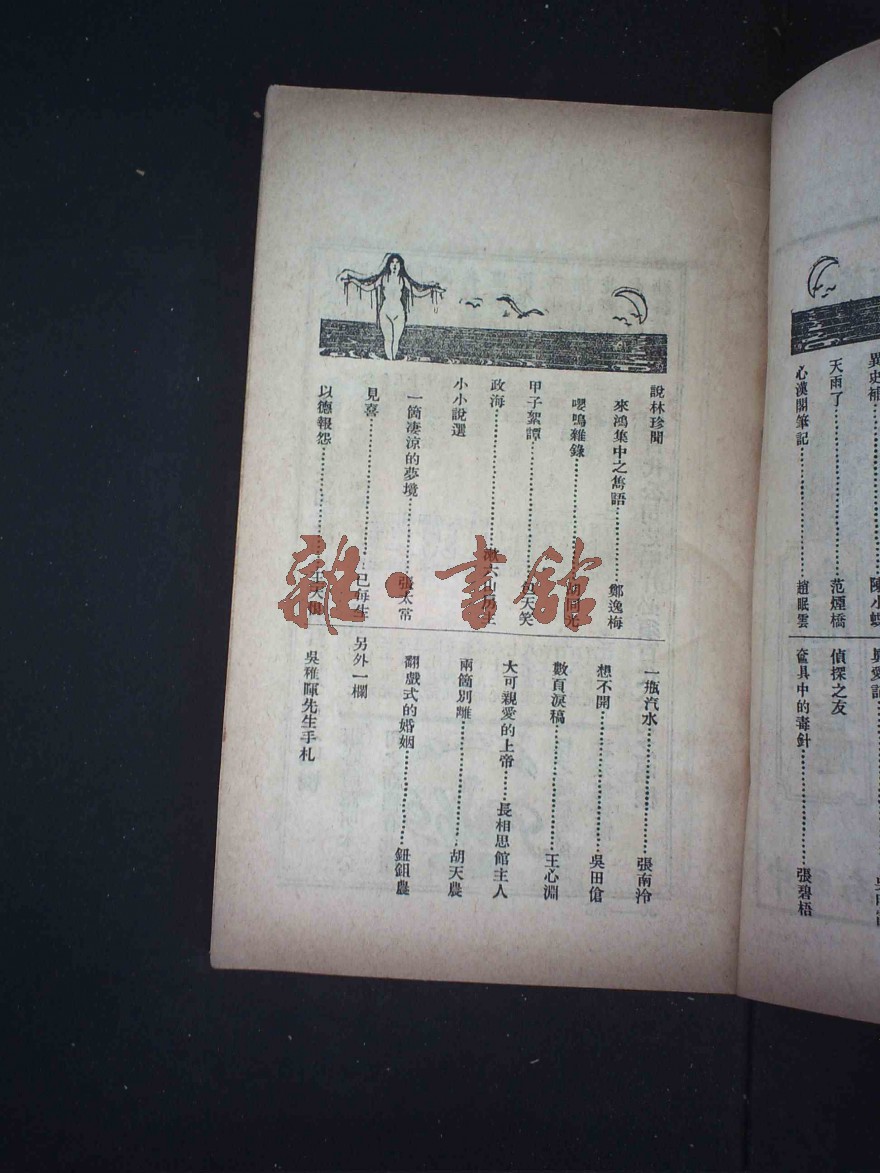 天雨了……范煙橋
心漢閣筆記……趙眠雲
偵探之友
奩具中的毒針……張碧梧
說林珍聞
來鴻集中之雋語……鄭逸梅
嚶鳴雜錄
甲子絮譚……包天笑
政海
小小說選
一箇凄涼的夢境……張太常
見喜……已每生
以德報怨
一瓶汽水……張南泠
想不開……吳田傖
數頁淚稿……王心淵
大可親愛的上帝……長相思館主人
兩箇別離……胡天農
翻戲式的婚姻……鈕鉏農
另外一欄
吳稚暉先生手札
雜·書館